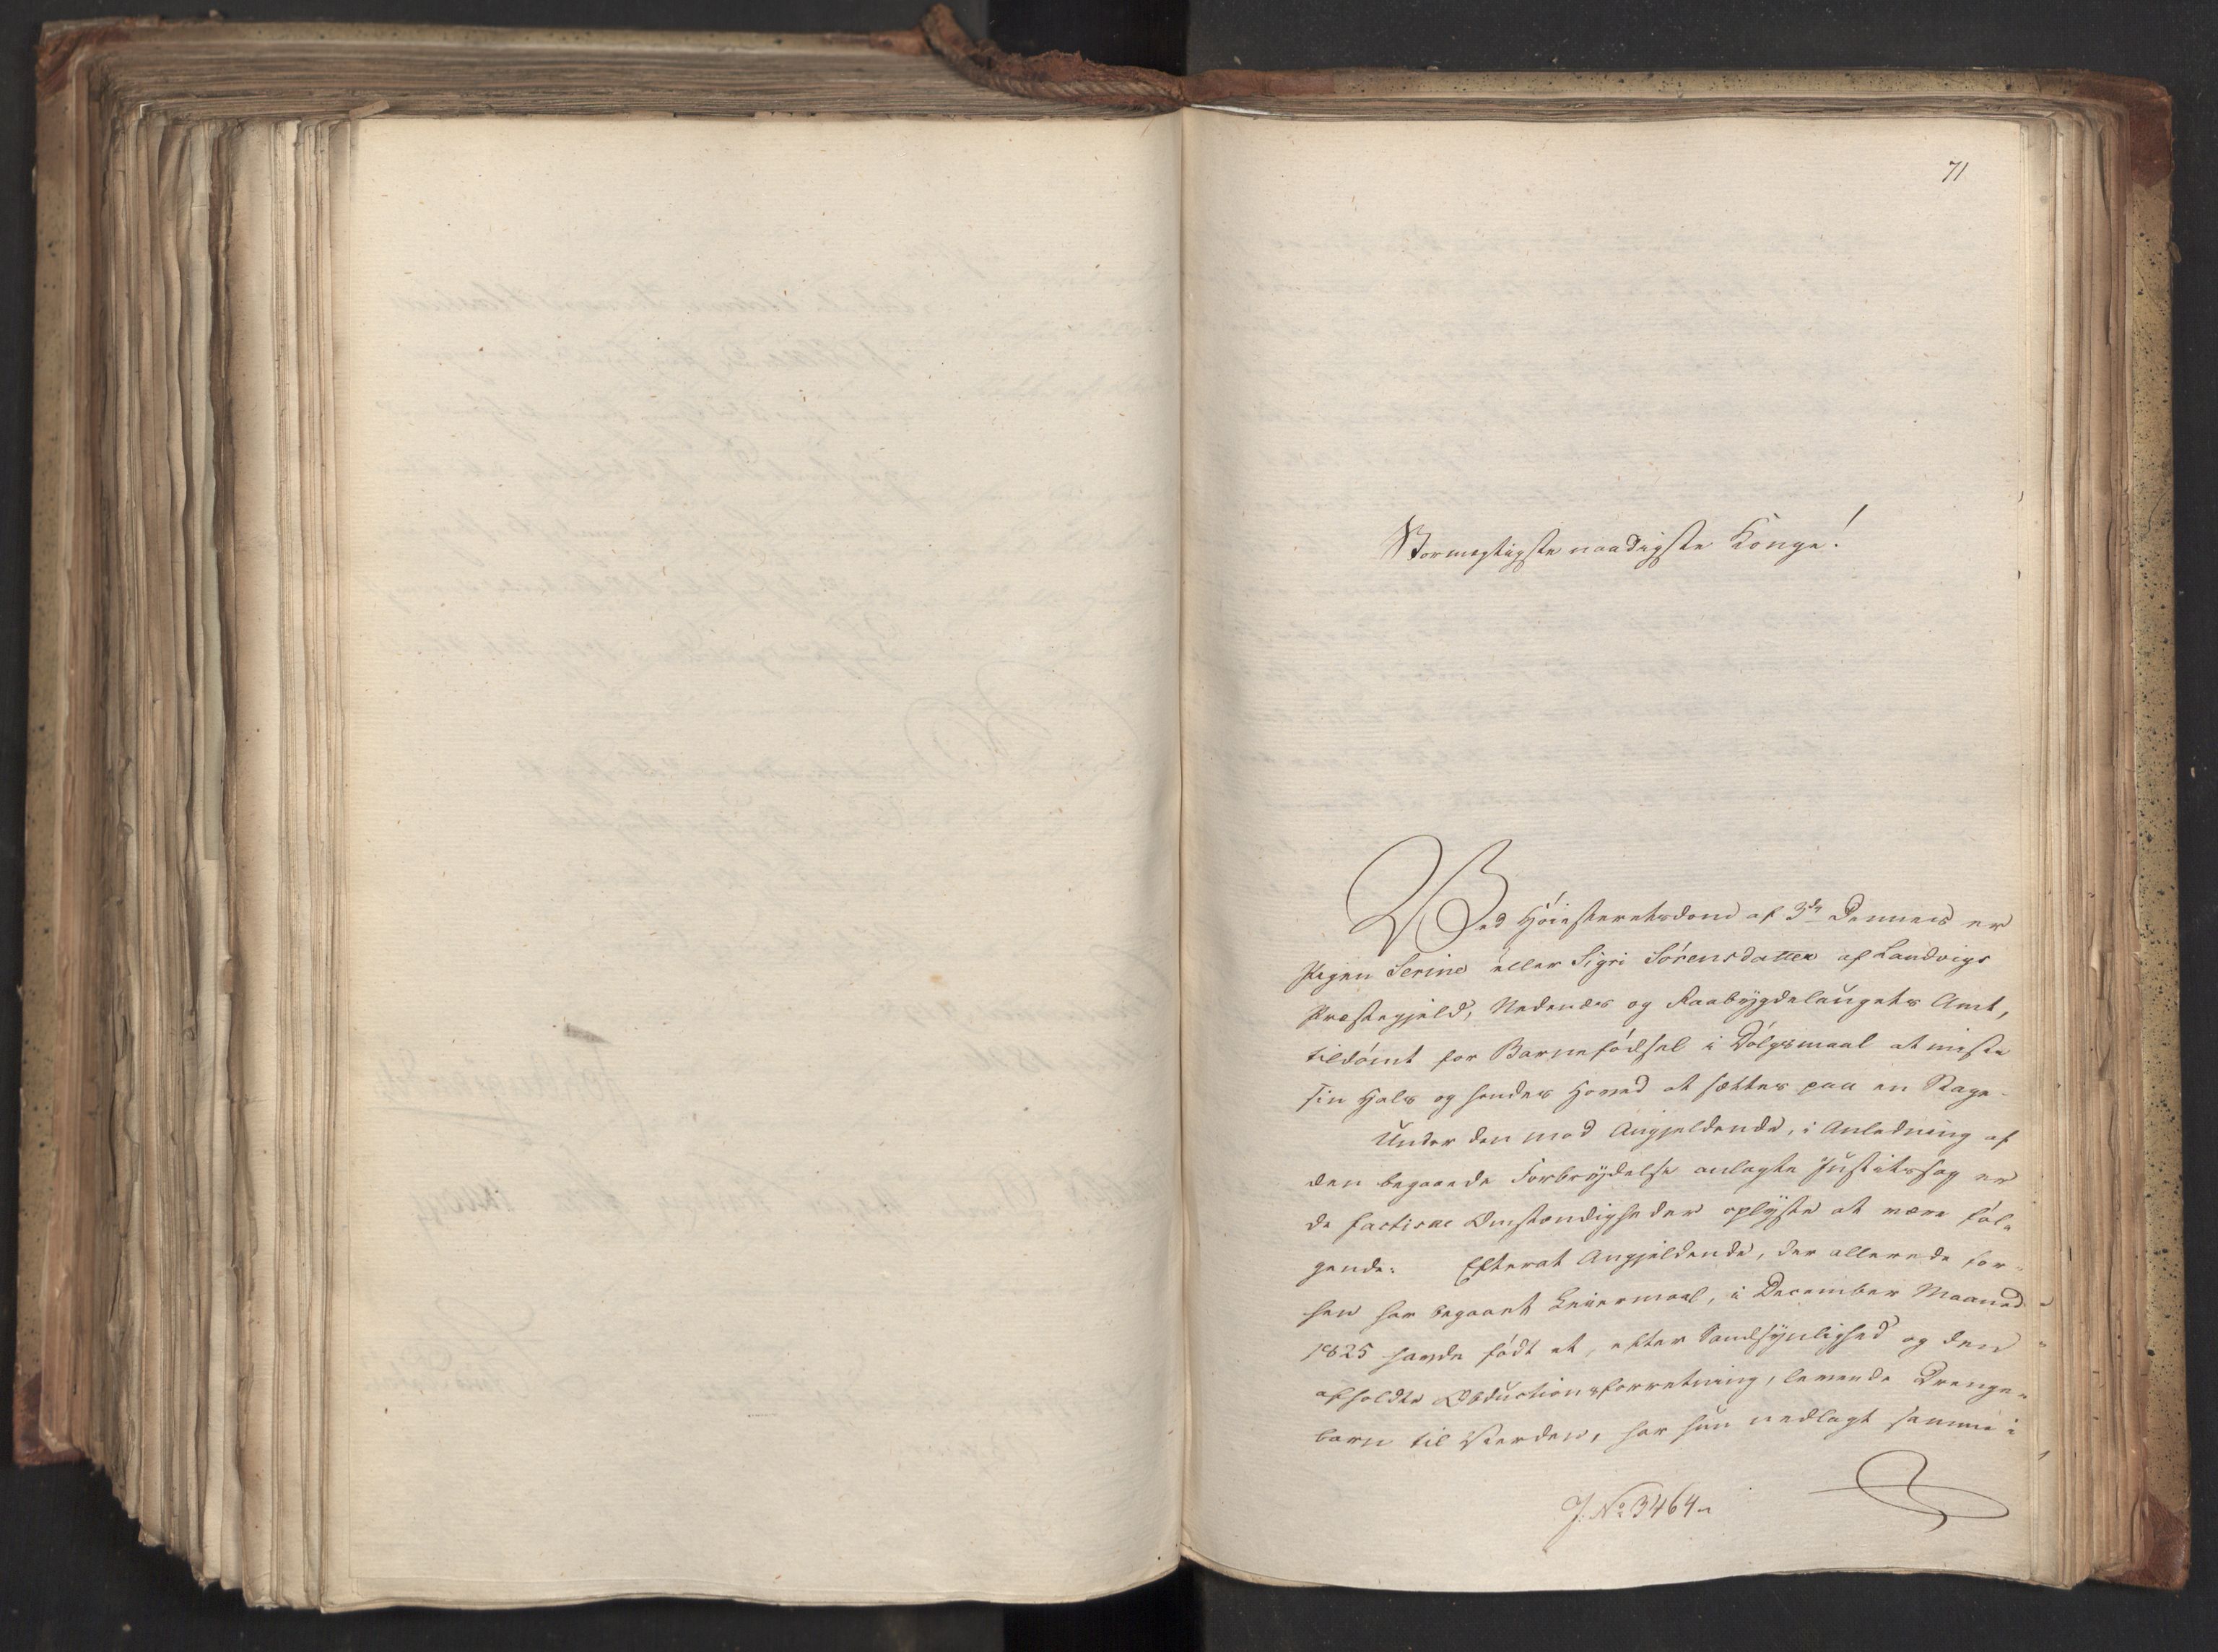 71
Stormægtigste naadigste Konge!
Ved Høiesteretsdom af 3die Dennes er
Pigen Serine eller Sigri Sørensdatter af Landvigs
Præstegjeld, Nedenæs og Raabÿgdelaugets Amt,
tildømt for Barnefødsel i Dølgsmaal at miste
sin Hals og hendes Hoved at sættes paa en Stage.
Under den mod Angjeldende, i Anledning af
den begaaede Forbrÿdelse anlagte Justitssag er
de factiske Omstændigheder oplÿste at være føl-
gende: Efterat Angjeldende, der allerede for-
hen har begaaet Leiermaal, i December Maaned
1825 havde født et, efter Sandsÿnlighed og den
afholdte Obductionsforretning, levende Drenge-
barn til Verden, har hun nedlagt samme i
J. No 3464.